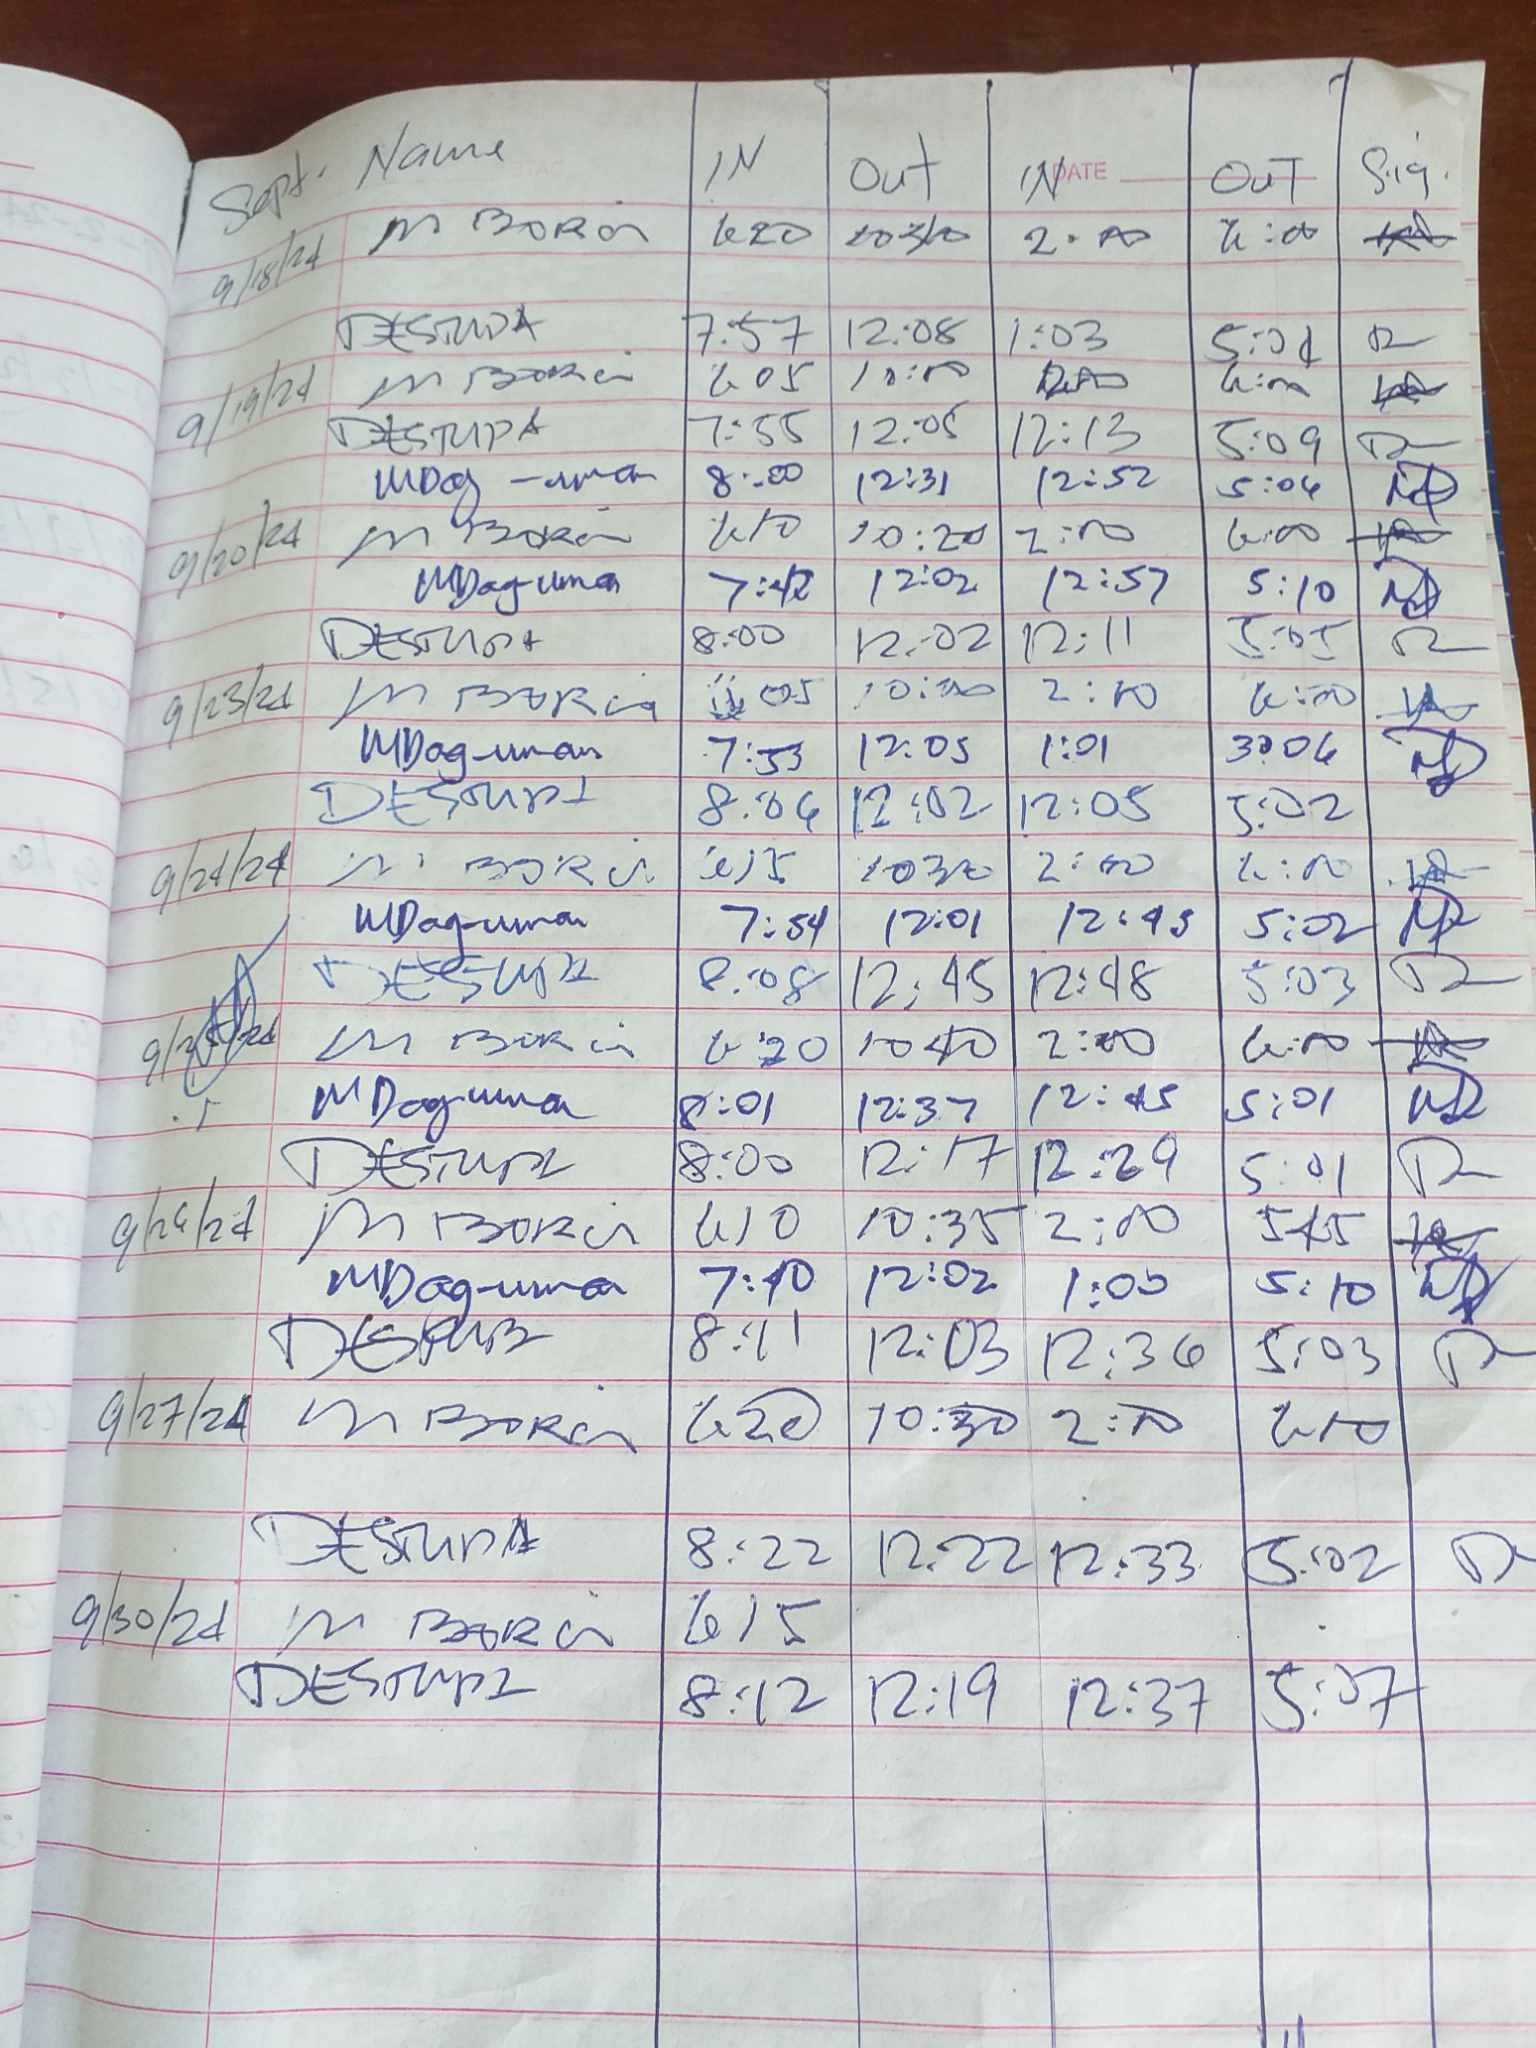 Sept. Name IN Out IN DATE OUT Sig.
9/18/24 M BORCI 620 1030 2:00 6:00
DESTUPA 7:57 12:08 1:03 5:01
9/19/24 M BORCI 605 10:00 6:00
DESTUPA 7:55 12:05 12:13 5:09
MDag-uman 8:00 12:31 12:52 5:06
9/20/24 M BORCI 610 10:20 2:00 6:00
MDag-uman 7:42 12:02 12:57 5:10
DESTUPA 8:00 12:02 12:11 5:05
9/23/24 M BORCI 05 10:00 2:00 6:00
MDag-uman 7:53 12:05 1:01 06
DESTUPA 8:06 12:02 12:05 5:02
9/24/24 M BORCI 615 1030 2:00 6:00
MDag-uman 7:54 12:01 12:43 5:02
DESTUPA 8:08 12:45 12:48 5:03
9/25/24 M BORCI 620 1040 2:00 6:00
MDag-uman 8:01 12:37 12:45 5:01
DESTUPA 8:00 12:17 12:29 5:01
9/26/24 M BORCI 610 10:35 2:00 545
MDag-uman 7:40 12:02 1:00 5:10
DESTUPA 8:11 12:03 12:36 5:03
9/27/24 M BORCI 620 10:30 2:00 610
DESTUPA 8:22 12:22 12:33 5:02
9/30/24 M BORCI 615
DESTUPA 8:12 12:19 12:37 5:07